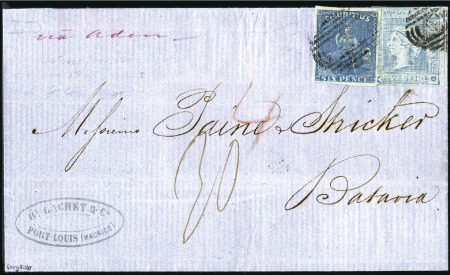 via Aden
MAURITIUS
SIX PENCE
Messieurs Paine & Stricker
30
Batavia
GACHET & Co
PORT-LOUIS (MAURICE)